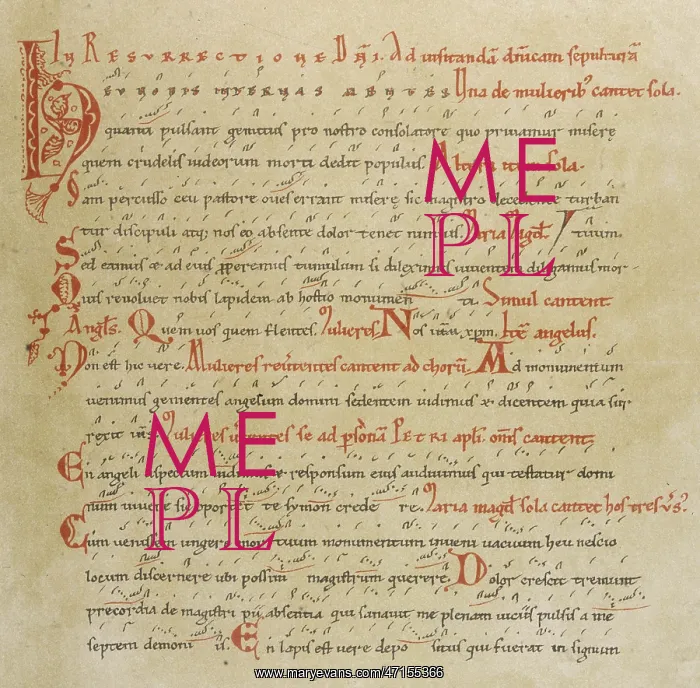 In Resurrectione Dñi. Ad visitandā dñicam sepulturā
Heu nobis internas mentes Una de mulierib' cantet sola.
quanti pulsant gemitus pro nostro consolatore quo privamur misere
quem crudelis iudeorum morti dedit populus. Altera sola.
Iam percusso ceu pastore oves errant misere sic magistro discedente turban
tur discipuli atq; nos eo absente dolor tenet nimius. Maria Magd
Sed eamus & ad eius pperemus tumulum si dileximus viventem diligamus mor tuum.
Quis revolvet nobis lapidem ab hostio monumen ti Simul cantent
Angls. Quem vos quem flentes. Mulieres. Nos xpm. Itē angelus.
Non est hic vere. Mulieres rev̄tentes cantent ad chorū. Ad monumentum
venimus gementes angelum domini sedentem vidimus & dicentem quia sur
rexit Mulieres se ad PETRI apli. om̄s cantent
En angeli aspectum vidimus & responsum eius audivimus qui testatur domi
num vivere sic oportet te symon crede re. Maria magd sola cantet hos tres v̄s.
Cum venissem ungere mortuum monumentum inveni vacuum heu nescio
locum discernere ubi possim magistrum querere. Dolor crescit tremunt
precordia de magistri pii absentia qui sanavit me plenam viciis pulsis a me
septem demoni is. En lapis est vere depo situs qui fuerat in signum
ME
PL
ME
PL
www.maryevans.com/47155366